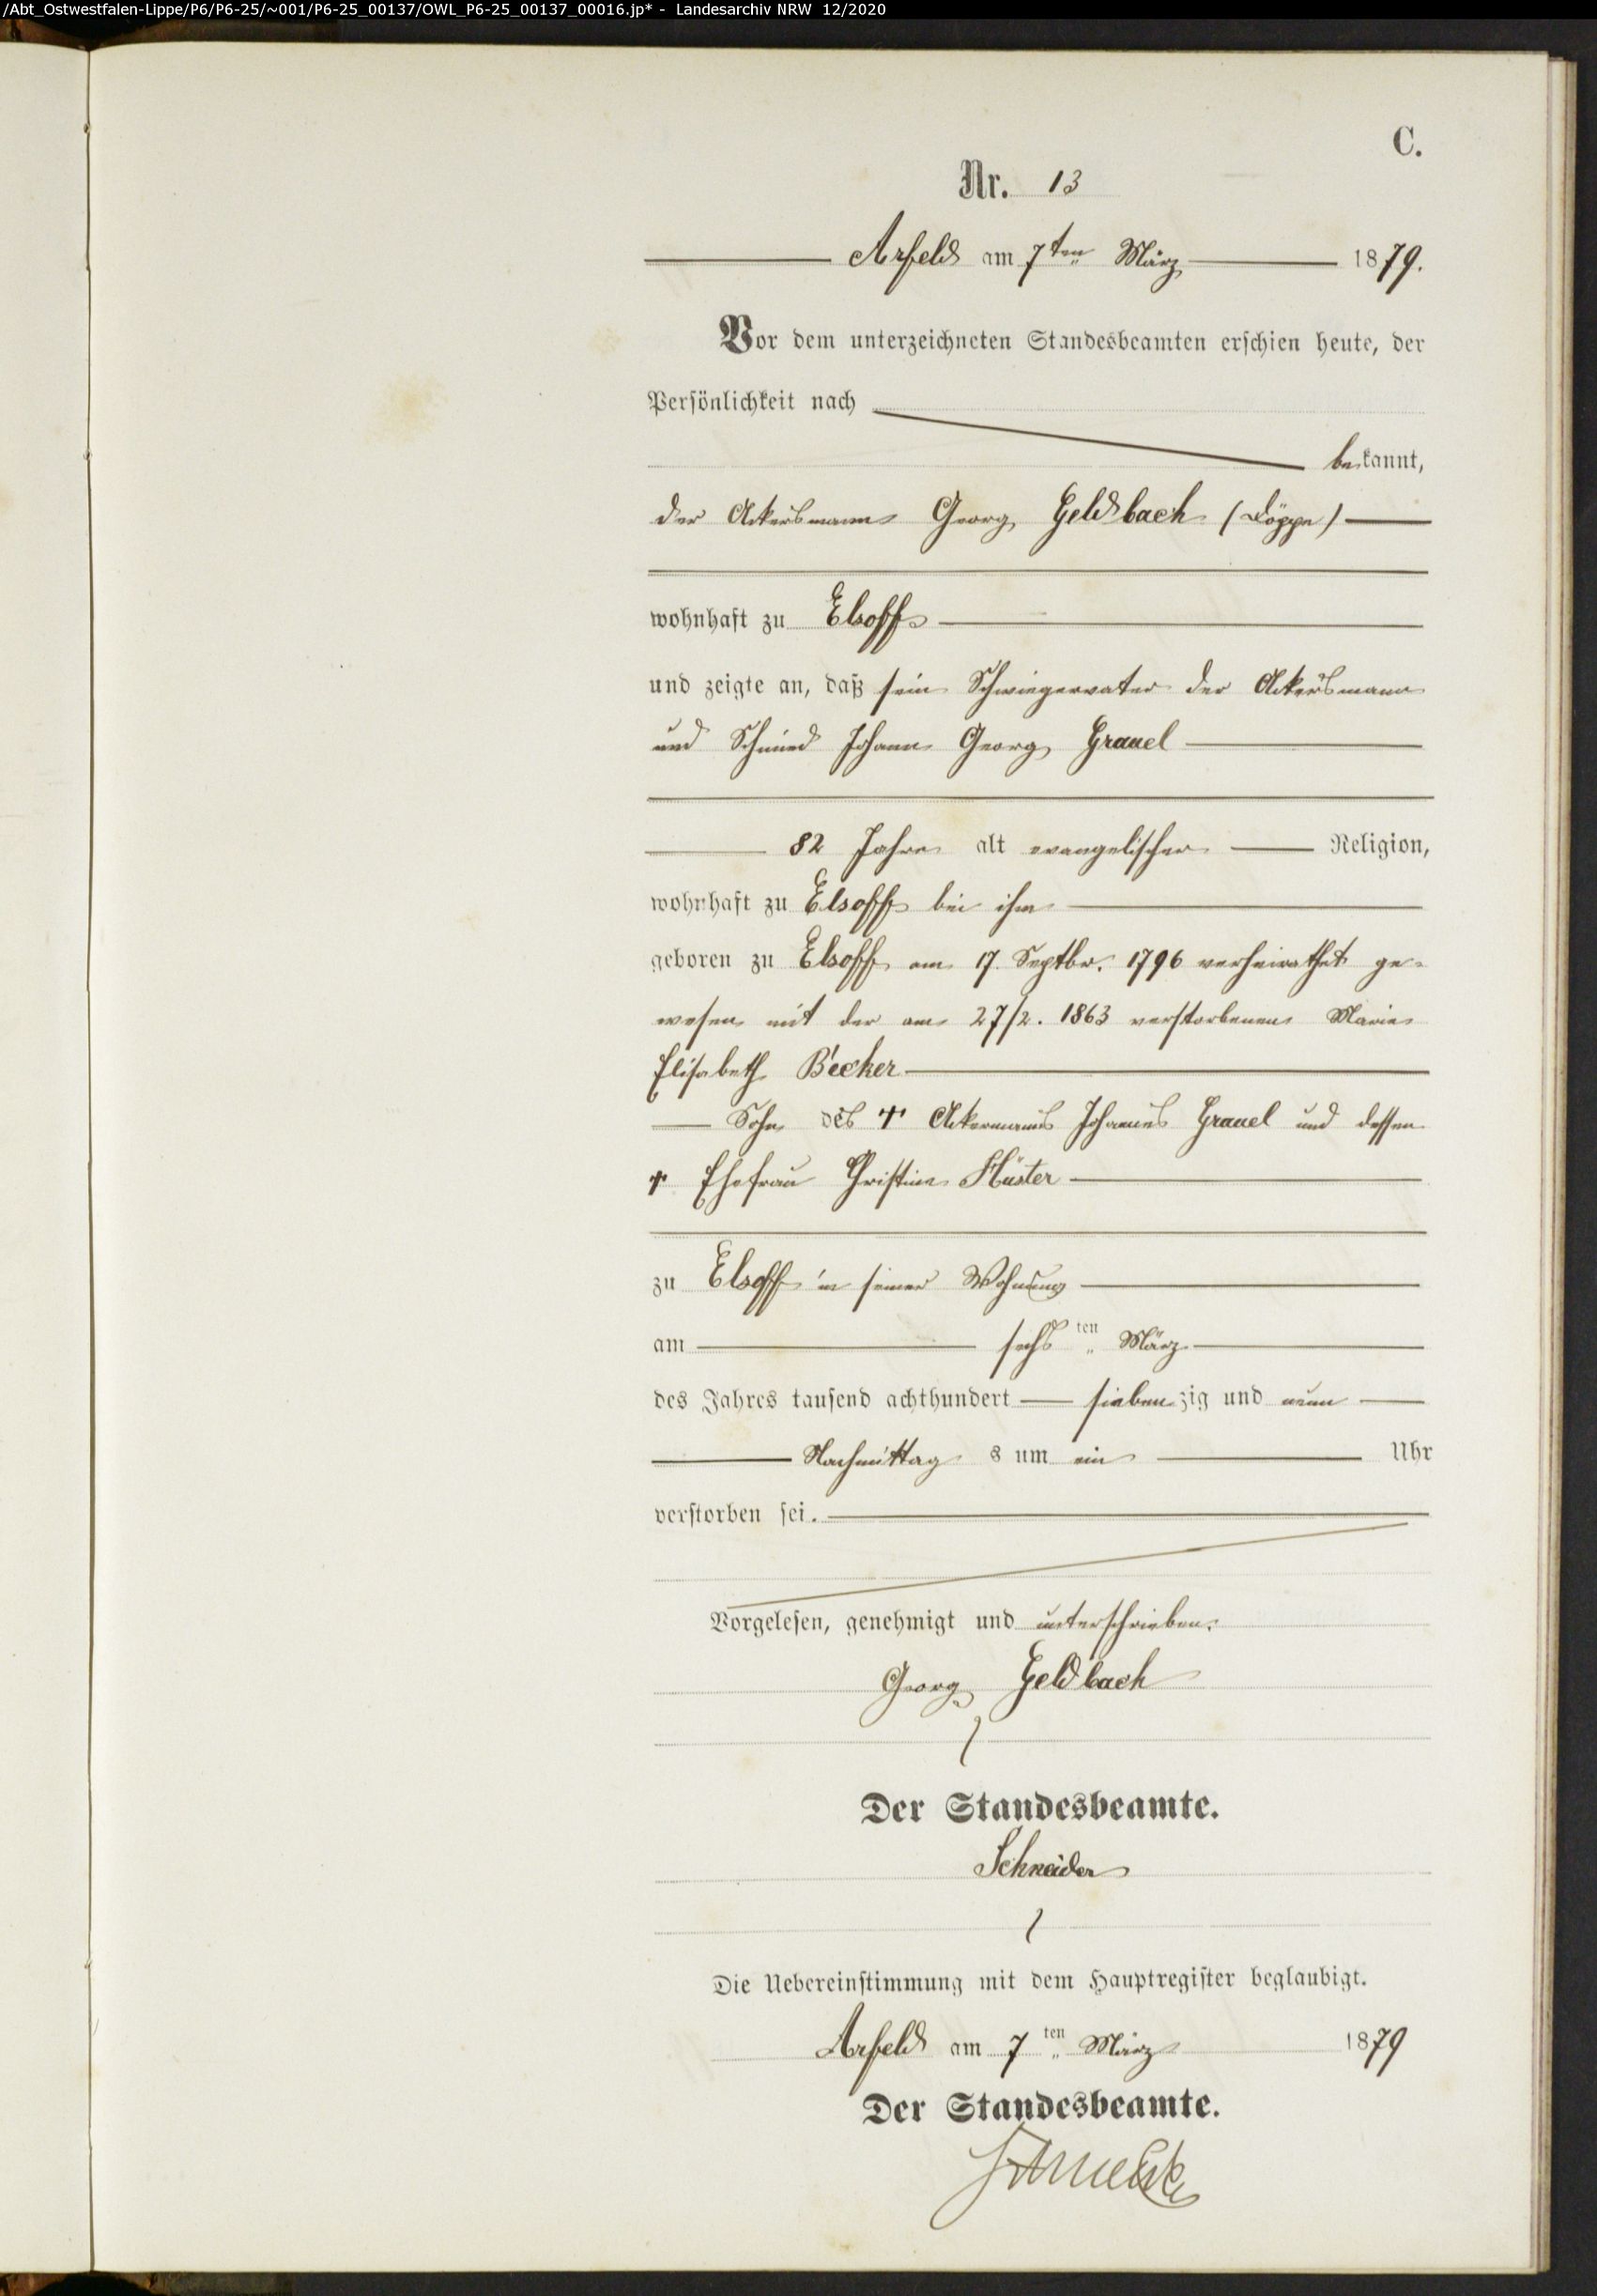 /Abt_Ostwestfalen-Lippe/P6/P6-25/~001/P6-25_00137/OWL_P6-25_00137_00016.jp* - Landesarchiv NRW 12/2020
C.
Nr. 13
Arfeld am 7ten März 1879.
Vor dem unterzeichneten Standesbeamten erschien heute, der
Persönlichkeit nach
bekannt,
der Ackersmann Georg Geldbach (Döppe)
wohnhaft zu Elsoff
und zeigte an, daß sein Schwiegervater der Ackersmann
und Schmied Johann Georg Grauel
82 Jahre alt evangelischer Religion,
wohnhaft zu Elsoff bei ihm
geboren zu Elsoff am 17. Septbr. 1796 verheirathet ge-
wesen mit der am 27/2. 1863 verstorbenen Marie
Elisabeth Becker
Sohn des † Ackermanns Johannes Grauel und dessen
† Ehefrau Christine Hüster
zu Elsoff in seiner Wohnung
am sechsten März
des Jahres tausend achthundert siebenzig und neun
Nachmittags um ein Uhr
verstorben sei.
Vorgelesen, genehmigt und unterschrieben.
Georg Geldbach
Der Standesbeamte.
Schneider
Die Uebereinstimmung mit dem Hauptregister beglaubigt.
Arfeld am 7ten März 1879
Der Standesbeamte.
Schneider